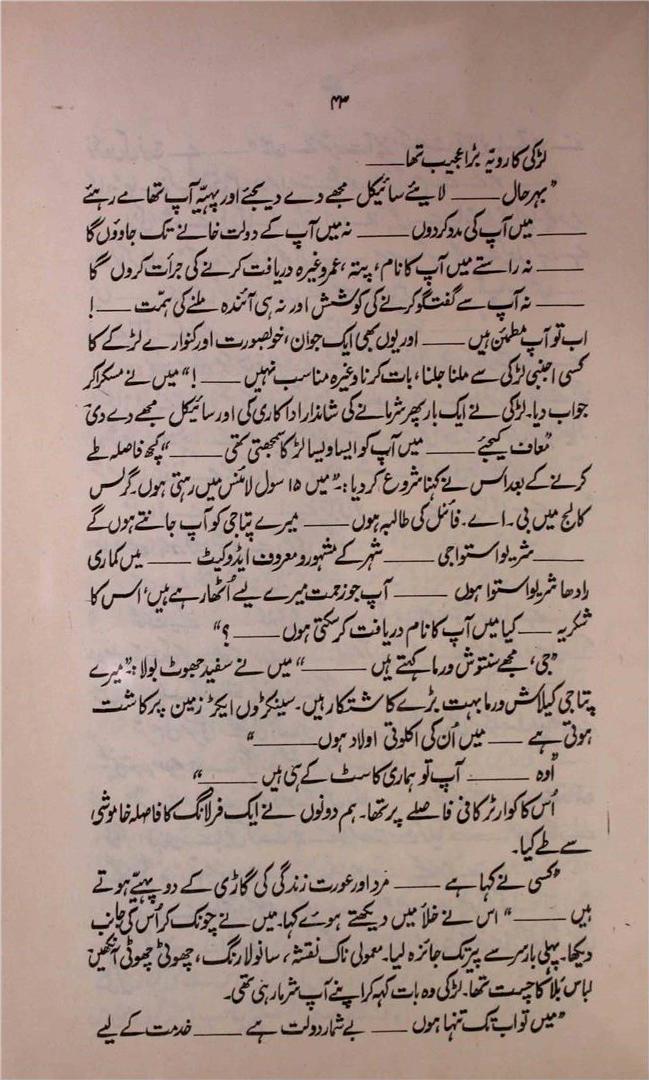 ۴۳
لڑکی کا رویّہ بڑا عجیب تھا ——
”بہرحال —— لائیے سائیکل مجھے دے دیجئے اور پہیّہ آپ تھامے رہئے
—— میں آپ کی مدد کردوں —— نہ میں آپ کے دولت خانے تک جاؤوں گا
—— نہ راستے میں آپ کا نام، پتہ، عمر وغیرہ دریافت کرنے کی جرأت کروں گا
—— نہ آپ سے گفتگو کرنے کی کوشش اور نہ ہی آئندہ ملنے کی ہمّت —— !
اب تو آپ مطمئن ہیں —— اور یوں بھی ایک جوان، خوبصورت اور کنوارے لڑکے کا
کسی اجنبی لڑکی سے ملنا جلنا، بات کرنا وغیرہ مناسب نہیں —— !“ میں نے مسکرا کر
جواب دیا۔ لڑکی نے ایک بار پھر شرمانے کی شاندار اداکاری کی اور سائیکل مجھے دے دی
”معاف کیجئے —— میں آپ کو ایسا ویسا لڑکا سمجھتی تھی ——“ کچھ فاصلہ طے
کرنے کے بعد اس نے کہنا شروع کر دیا :۔ ”میں ۱۵ سول لائنس میں رہتی ہوں۔ گرلس
کالج میں بی۔ اے۔ فائنل کی طالبہ ہوں —— میرے پتاجی کو آپ جانتے ہوں گے
—— شریواستواجی —— شہر کے مشہور و معروف ایڈوکیٹ —— میں کماری
رادھا شریواستوا ہوں —— آپ جو زحمت میرے لیے اُٹھا رہے ہیں، اس کا
شکریہ —— کیا میں آپ کا نام دریافت کر سکتی ہوں —— ؟“
”جی، مجھے سنتوش ورما کہتے ہیں ——“ میں نے سفید جھوٹ بولا :۔ ”میرے
پتاجی کیلاش ورما بہت بڑے کاشتکار ہیں۔ سینکڑوں ایکڑ زمین پر کاشت
ہوتی ہے —— میں اُن کی اکلوتی اولاد ہوں ——“
”اوہ —— آپ تو ہماری کاسٹ کے ہی ہیں ——“
اُس کا کوارٹر کافی فاصلے پر تھا۔ ہم دونوں نے ایک فرلانگ کا فاصلہ خاموشی
سے طے کیا۔
”کسی نے کہا ہے —— مرد اور عورت زندگی کی گاڑی کے دو پہیّے ہوتے
ہیں ——“ اس نے خلأ میں دیکھتے ہوئے کہا۔ میں نے چونک کر اُس کی جانب
دیکھا۔ پہلی بار سر سے پیر تک جائزہ لیا۔ معمولی ناک نقشہ، سانولا رنگ، چھوٹی چھوٹی آنکھیں
لباس بَلا کا چست تھا۔ لڑکی وہ بات کہہ کر اپنے آپ شرما رہی تھی۔
”میں تو اب تک تنہا ہوں —— بے شمار دولت ہے —— خدمت کے لیے